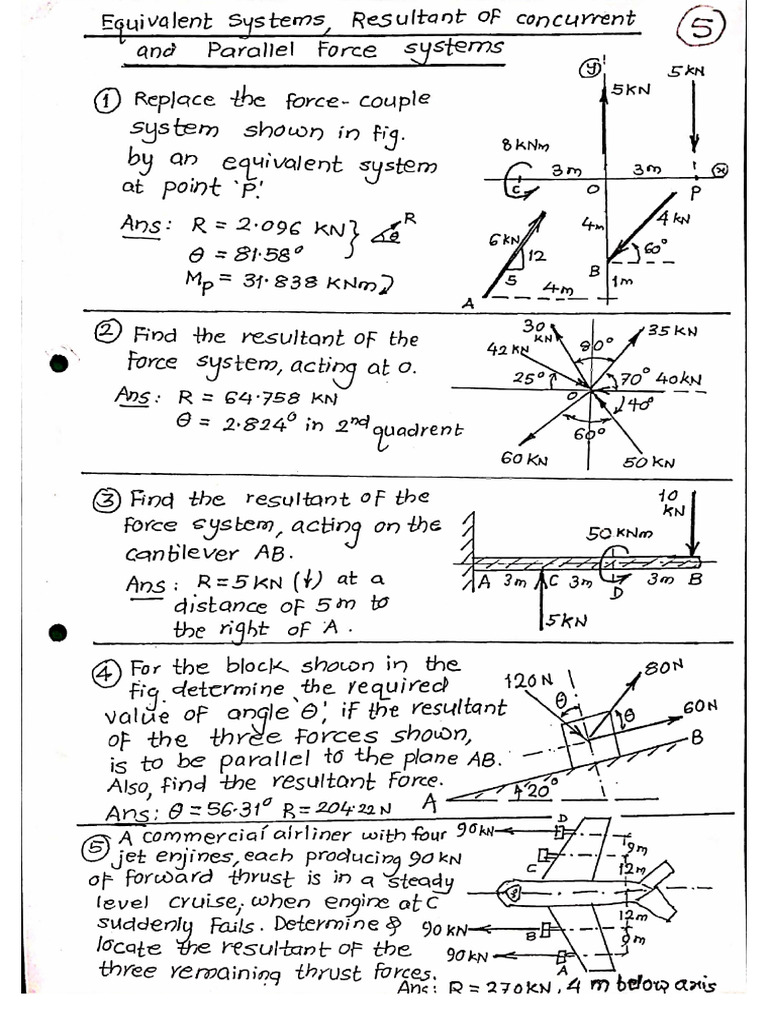 Equivalent Systems, Resultant of concurrent
and Parallel Force systems
5
① Replace the force-couple
system shown in fig.
by an equivalent system
at point 'P'.
Ans: R = 2.096 KN
θ = 81.58°
Mp = 31.838 KNm
R
θ
y
5KN
5KN
8 KNm
3m
3m
x
C
O
P
4m
4 KN
6KN
12
5
60°
B
1m
4m
A
② Find the resultant of the
force system, acting at O.
Ans: R = 64.758 KN
θ = 2.824° in 2nd quadrent
30 KN
80°
35KN
42KN
25°
70°
40KN
O
40°
60°
60KN
50KN
③ Find the resultant of the
force system, acting on the
cantilever AB.
Ans: R=5KN (↓) at a
distance of 5m to
the right of A.
10 KN
50 KNm
A 3m C 3m 3m B
D
5KN
④ For the block shown in the
fig. determine the required
value of angle 'θ', if the resultant
of the three forces shown,
is to be parallel to the plane AB.
Also, find the resultant force.
Ans: θ=56.31° R=204.22N
120N
θ
80N
θ
60N
B
A
20°
⑤ A commercial airliner with four
jet enjines, each producing 90KN
of forward thrust is in a steady
level cruise, when engine at C
suddenly fails. Determine &
locate the resultant of the
three remaining thrust forces.
Ans: R = 270KN, 4 m below axis
90KN
D
9m
C
12m
12m
90KN
B
9m
90KN
A